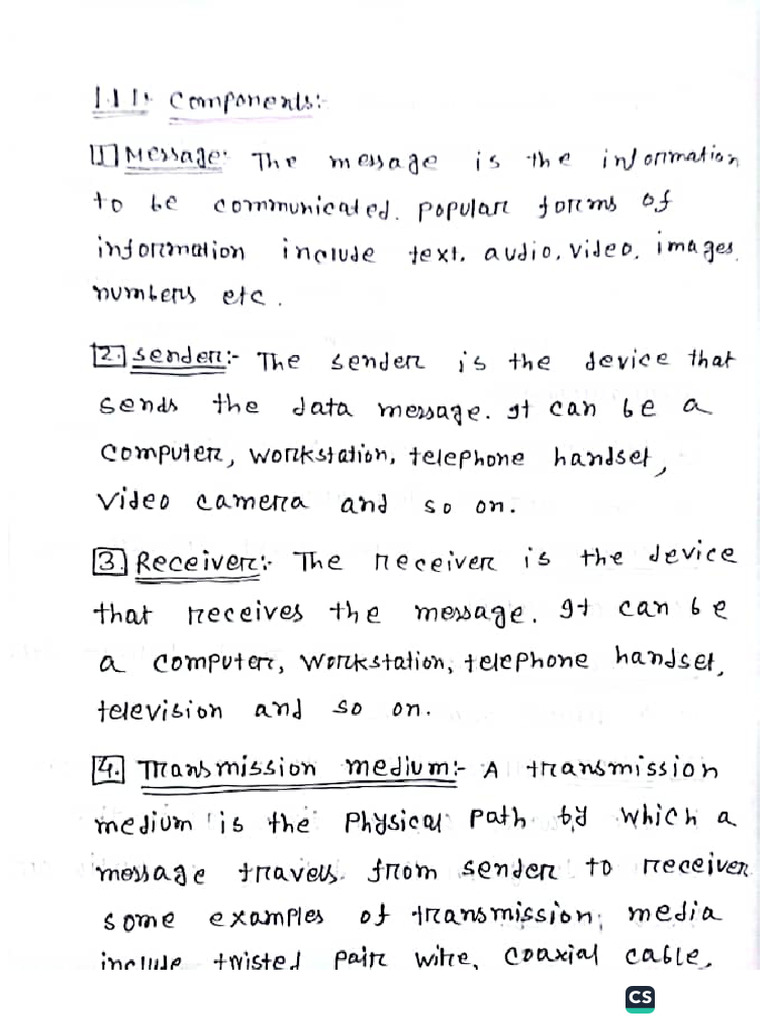 1.1.1. Components:-
1 Message: The message is the information
to be communicated. popular forms of
information include text. audio, video, images,
numbers etc.
2. sender:- The sender is the device that
sends the data message. It can be a
computer, workstation, telephone handset,
video camera and so on.
3. Receiver:- The receiver is the device
that receives the message. It can be
a computer, workstation, telephone handset,
television and so on.
4. Transmission medium:- A transmission
medium is the physical path by which a
message travels from sender to receiver
some examples of transmission, media
include twisted pair wire, coaxial cable,
CS